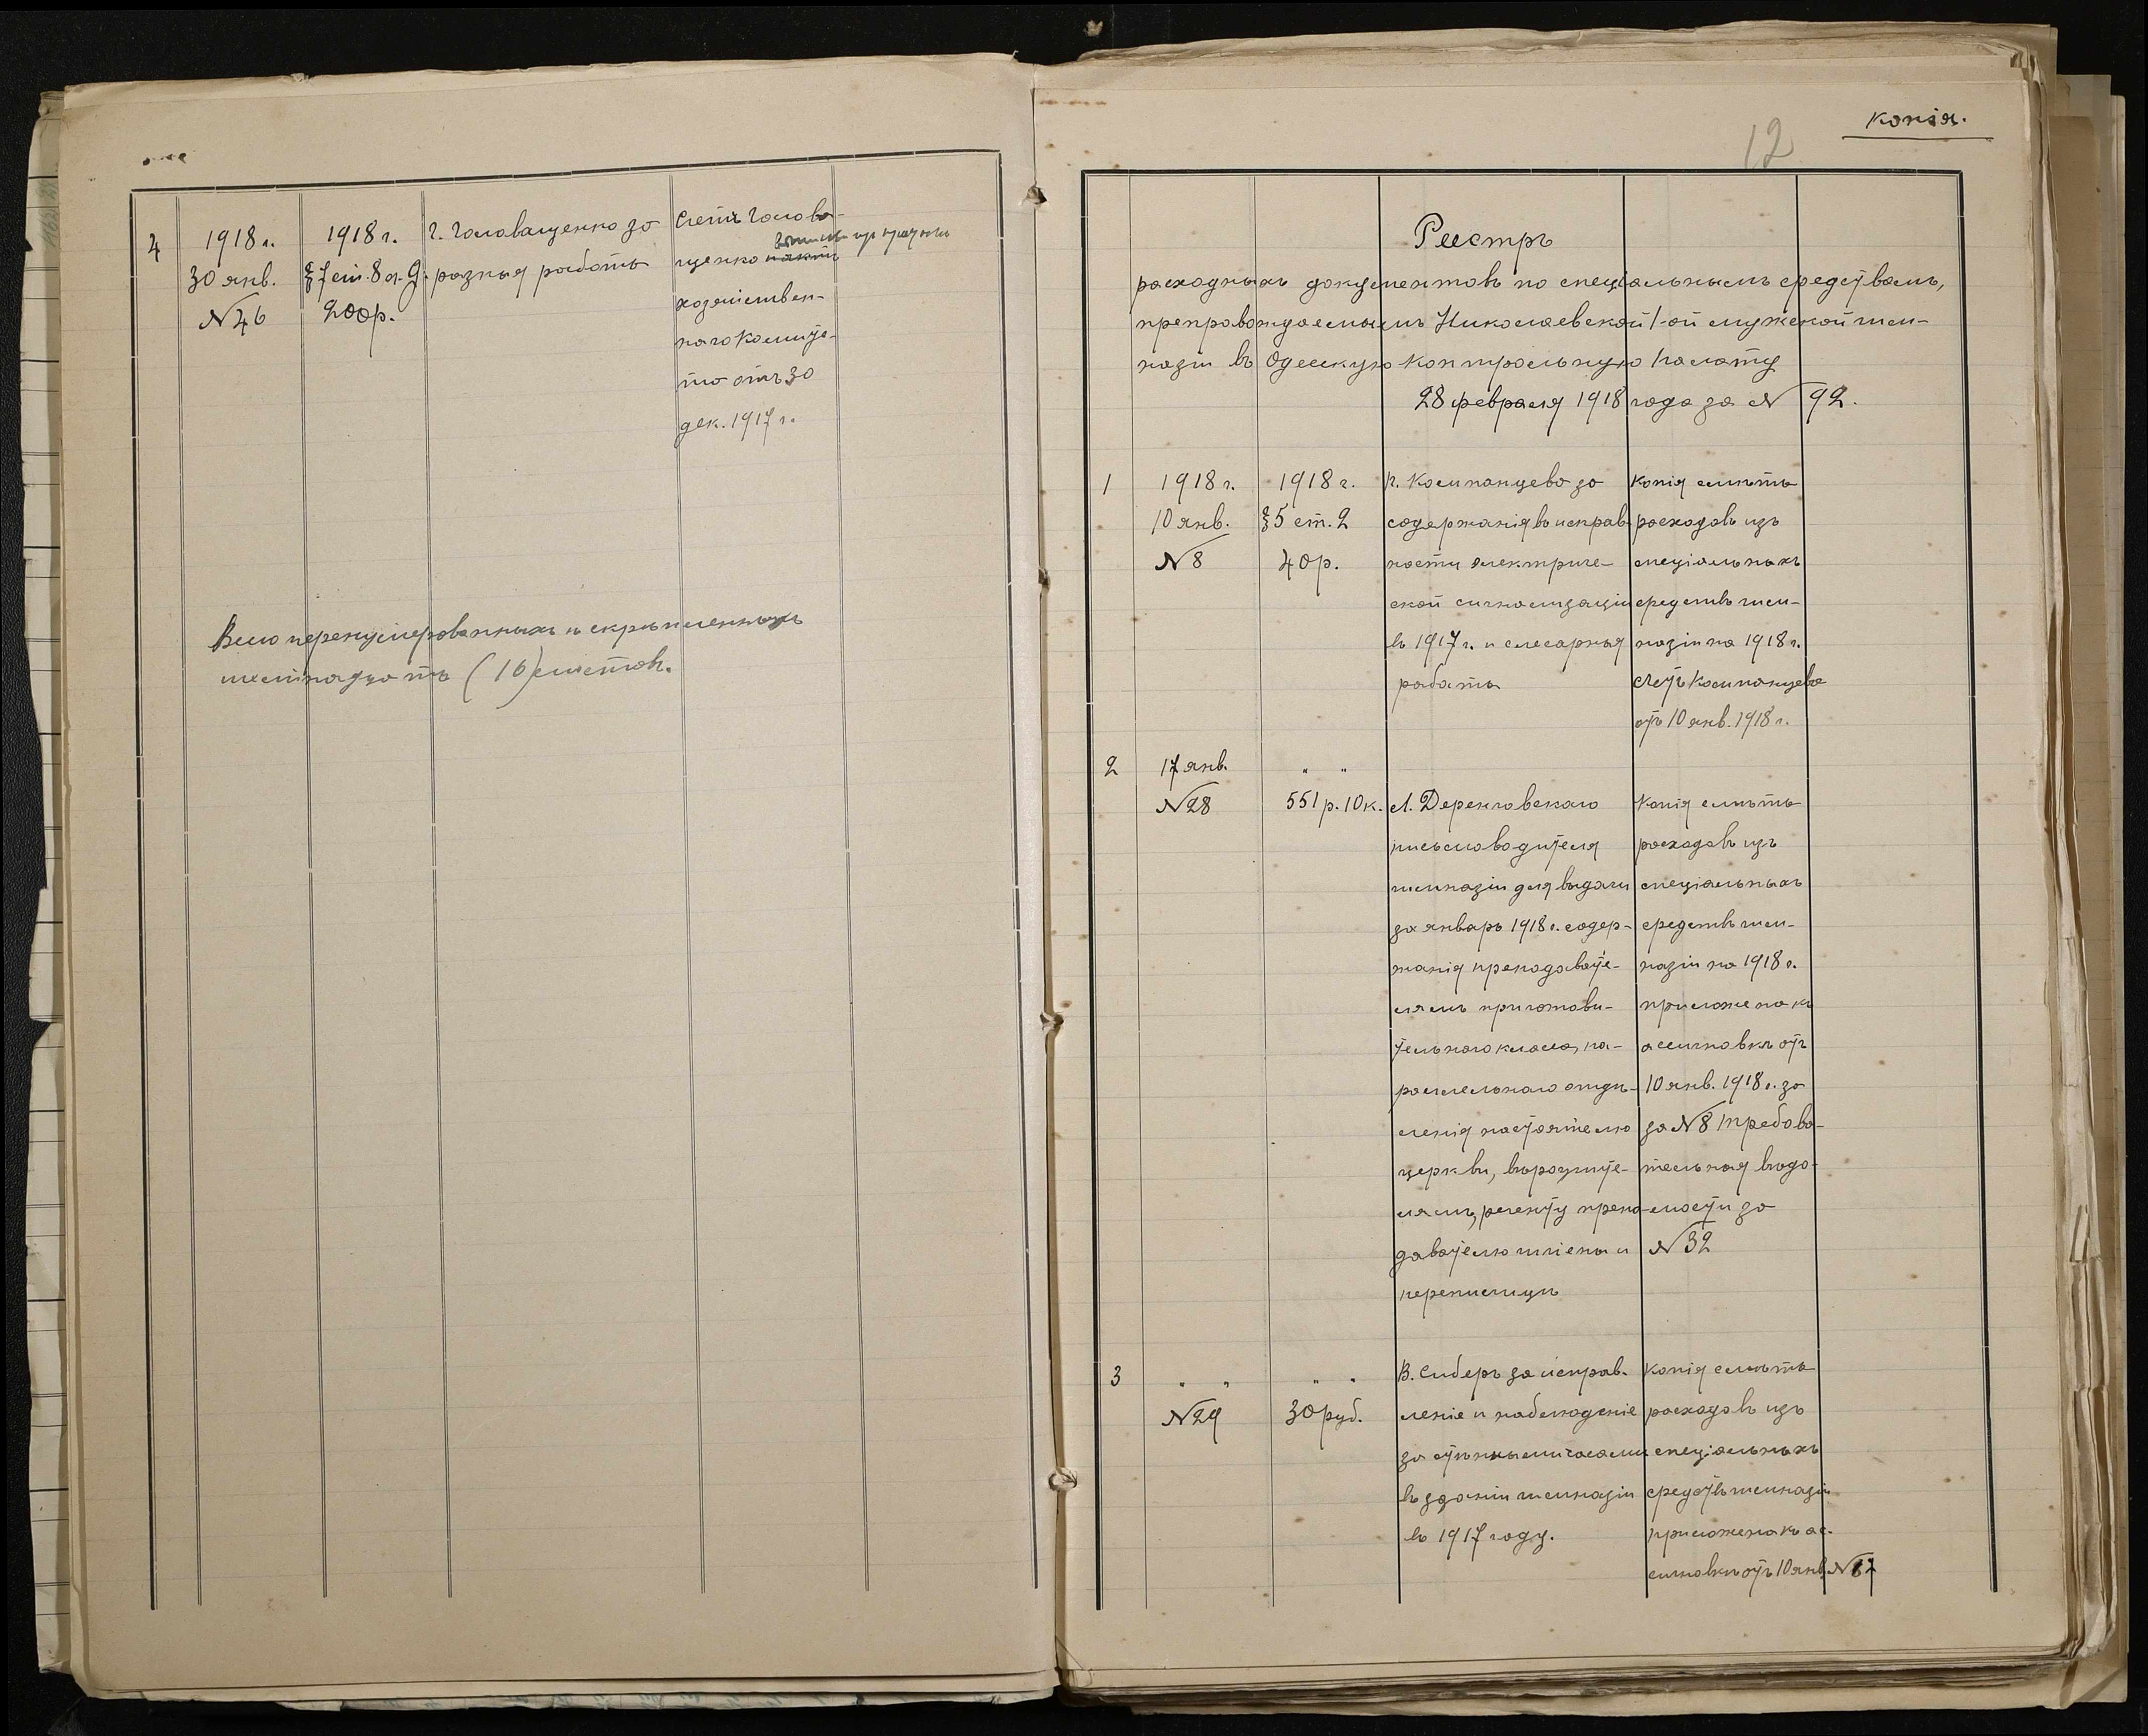 4
1918 г.
30 янв.
№ 46
1918 г.
§ 7 ст. 8 л. 9.
200 р.
Г. Головащенко за
разныя работы
Счетъ Голова-
щенко
хозяйствен-
наго Комите-
та отъ 30
дек. 1917 г.
Всего перенумерованныхъ и скрѣпленныхъ
шестнадцать (16) листовъ.
копія.
12
Реестръ
расходныхъ документовъ по спеціальнымъ средствамъ,
препровождаемымъ Николаевской 1-ой мужской гим-
назіи въ Одесскую Контрольную Палату
28 февраля 1918 года за № 92.
1
1918 г.
10 янв.
№ 8
1918 г.
§ 5 ст. 2
40 р.
П. Компанцева за
содержанія въ исправ-
ности электриче-
ской сигнализаціи
въ 1917 г. и слесарныя
работы
Копія смѣты
расходовъ изъ
спеціальныхъ
средствъ гим-
назіи на 1918 г.
Счетъ Компанцева
отъ 10 янв. 1918 г.
2
17 янв.
№ 28
" "
551 р. 10 к.
Л. Деренговскаго
письмоводителя
гимназіи для выдачи
за январь 1918 г. содер-
жанія преподавате-
лямъ приготови-
тельнаго класса, па-
раллельнаго отдѣ-
ленія настоятелю
церкви, вѣроучите-
лямъ, регенту препо-
давателю гигіены и
переписчицѣ
Копія смѣты
расходовъ изъ
спеціальныхъ
средствъ гим-
назіи на 1918 г.
приложена къ
ассигновкѣ отъ
10 янв. 1918 г. за
за № 8 Требова-
тельная вѣдо-
мости за
№ 32
3
" "
№ 29
" "
30 руб.
В. Сиберъ за исправ-
леніе и наблюденіе
за стѣнными часами
въ зданіи гимназіи
въ 1917 году.
Копія смѣты
расходовъ изъ
спеціальныхъ
средствъ гимназіи
приложена къ ас-
сигновкѣ отъ 10 янв. №